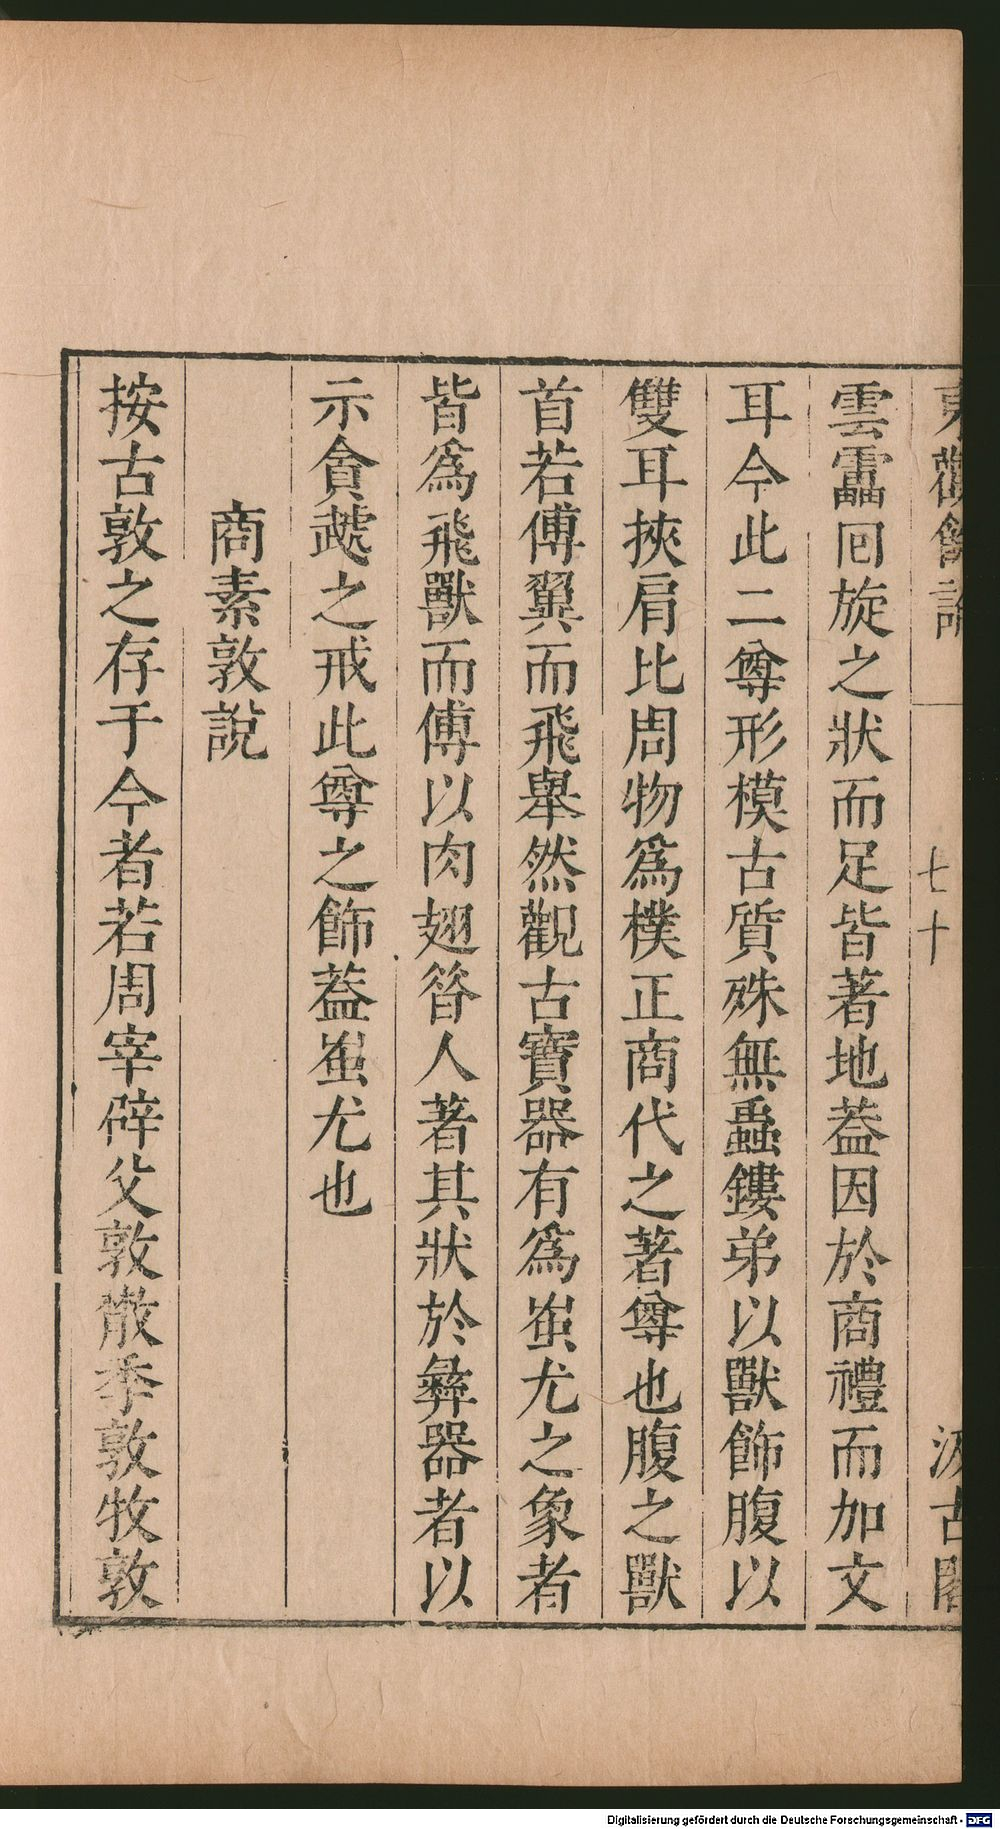 東觀餘論
七十
汲古閣
雲靁囘旋之狀而足皆著地葢因於商禮而加文
耳今此二尊形模古質殊無蟲鏤弟以獸飾腹以
雙耳挾肩比周物爲樸正商代之著尊也腹之獸
首若傅翼而飛舉然觀古寶器有爲蚩尤之象者
皆爲飛獸而傅以肉翅昝人著其狀於彝器者以
示貪虣之戒此尊之飾葢蚩尤也
商素敦說
按古敦之存于今者若周宰辟父敦散季敦牧敦
Digitalisierung gefördert durch die Deutsche Forschungsgemeinschaft - DFG